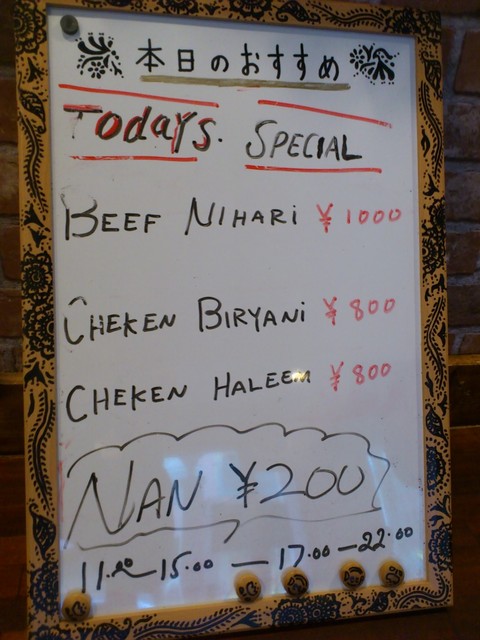 本日のおすすめ
Todays. SPECIAL
BEEF NIHARI ¥1000
CHEKEN BIRYANI ¥800
CHEKEN HALEEM ¥800
NAN ¥200
11.00~15.00 — 17.00 — 22.00